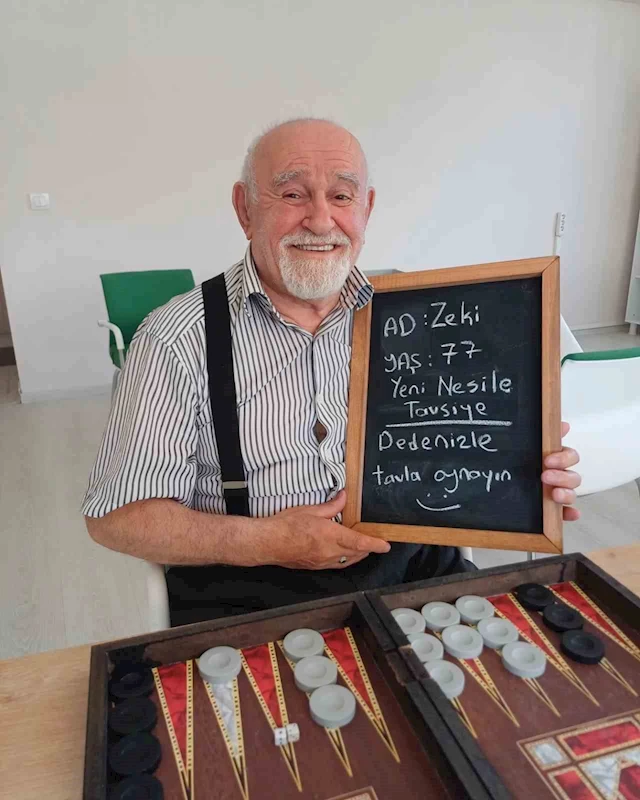 AD : Zeki
YAŞ : 77
Yeni Nesile
Tavsiye
Dedenizle
tavla oynayın